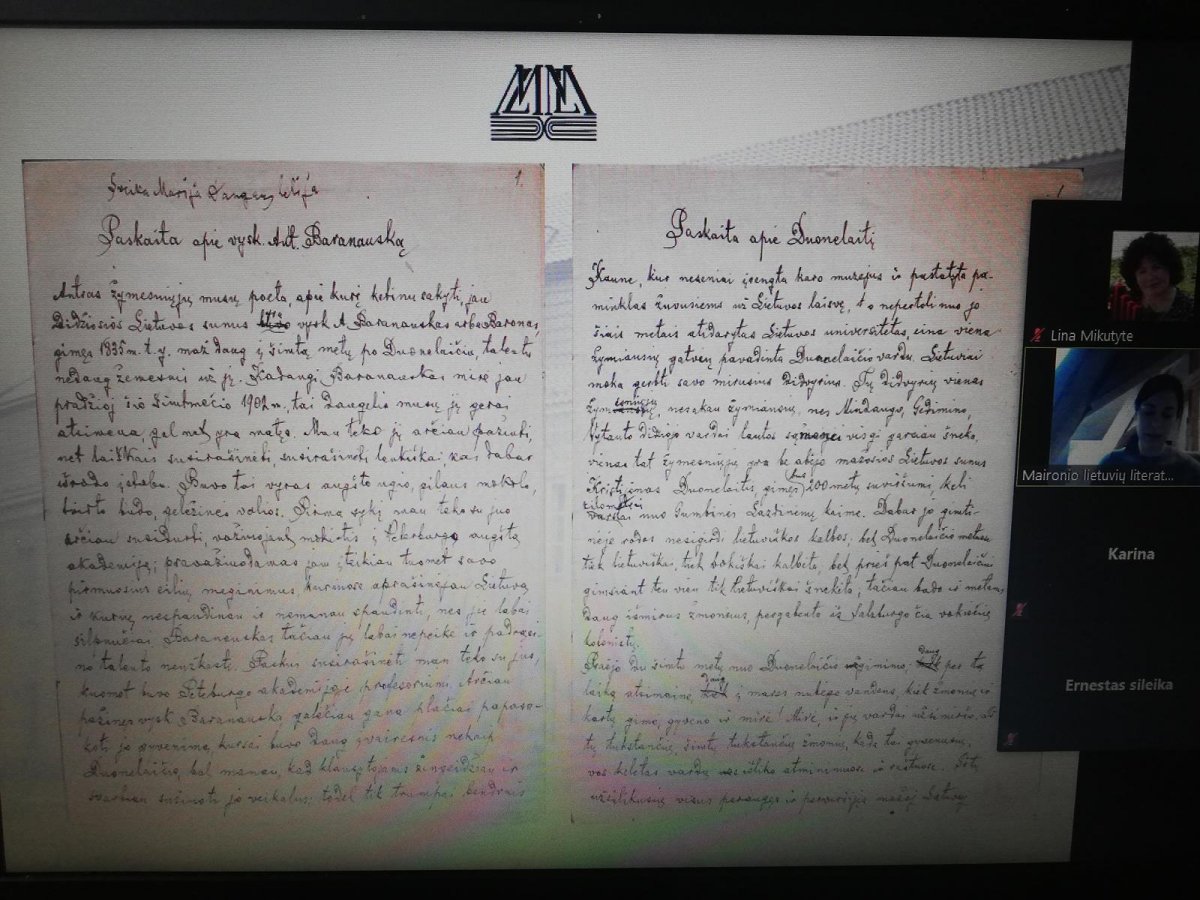 MM
1.
Sveika Marija Dangaus lelija
Paskaita apie vysk. Ant. Baranauską
Antras žymesniųjų musų poeta, apie kurį ketinu sakyti, jau
Didžiosios Lietuvos sunus vysk. A. Baranauskas arba Baronas,
gimęs 1835 m. t. y. maž daug į šimtą metų po Duonelaičiu, talentu
nedaug žemesnis už jį. Kadangi Baranauskas mirė jau
pradžioj šio šimtmečio 1902 m., tai daugelis musų jį gerai
atsimena, gal net yra matę. Man teko jį arčiau pažinti,
net laiškais susirašinėti, susirašinėti lenkiškai kas dabar
išrodo įstabu. Buvo tai vyras augšto ugio, pilnas mokslo,
budo, geležinės valios. Pirmą sykį man teko su juo
arčiau susidurti, važiuojant mokintis į Peterburgo augštą
akademiją; pravažiuodamas jam įteikiau tuomet savo
pirmuosius eilių meginimus, kuriuose aprašinėjau Lietuvą
ir kurių nespausdinau ir nemanau spausdinti, nes jie labai
silpnučiai. Baranauskas tačiau jų labai nepeikė ir padrąsi-
no talento neužkasti. Paskui susirašinėti man teko su juo,
kuomet buvo Peterburgo akademijoje profesorium. Arčiau
pažinęs vysk. Baranauską, galėčiau gana plačiai papasa-
koti jo gyvenimą, kursai buvo daug įvairesnis nekaip
Duonelaičio, bet manau, kad klausytojams žingeidžiau ir
svarbiau sužinoti jo veikalus; todėl tik trumpai bendrais
Paskaita apie Duonelaitį
Kaune, kur neseniai įrengta karo muzejus ir pastatyta pa-
minklas žuvusiems už Lietuvos laisvę, o nepertoli nuo jo
šiais metais atidarytas Lietuvos universitetas, eina viena
žymiausių gatvių pavadinta Duonelaičio vardu. Lietuviai
moka gerbti savo mirusius didvyrius. Tų didvyrių vienas
nesakau žymiausių, nes Mindaugo, Gedimino,
Vytauto Didžiojo vardai visgi garsiau skamba,
vienas tat žymesniųjų yra be abejo mažosios Lietuvos sunus
Kristijonas Duonelaitis, gimęs 200 metų suviršium, keli
kilometrai nuo Gumbinės Lazdinėnų kaime. Dabar jo gimti-
nėje rodos nesigirdi lietuviškos kalbos, bet Duonelaičio metuose
tiek lietuviškai, tiek vokiškai kalbėta, bet prieš pat Duonelaičiui
gimsiant ten vien tik lietuviškai šnekėta; tačiau bado ir maro
daug išmirus žmonėms, pergabento iš Salzburgo čia vokiečių
kolonistų.
Praėjo du šimtu metų nuo Duonelaičio gimimo. daug per tą
laiką atsimainė, daug į mares nubėgo vandens, kiek žmonių ir
kartų gimė, gyveno ir mirė! Mirė, ir jų vardai užsimiršo. Iš
tų tukstančių, šimtų tukstančių žmonių, kada tai gyvenusių,
vos keletas vardų išliko atmintinuose ir raštuose. Šitų
užsilikusių visus peraugęs ir pervirsijęs mažojoj Lietuvoj
Lina Mikutyte
Maironio lietuvių literat...
Karina
Ernestas sileika